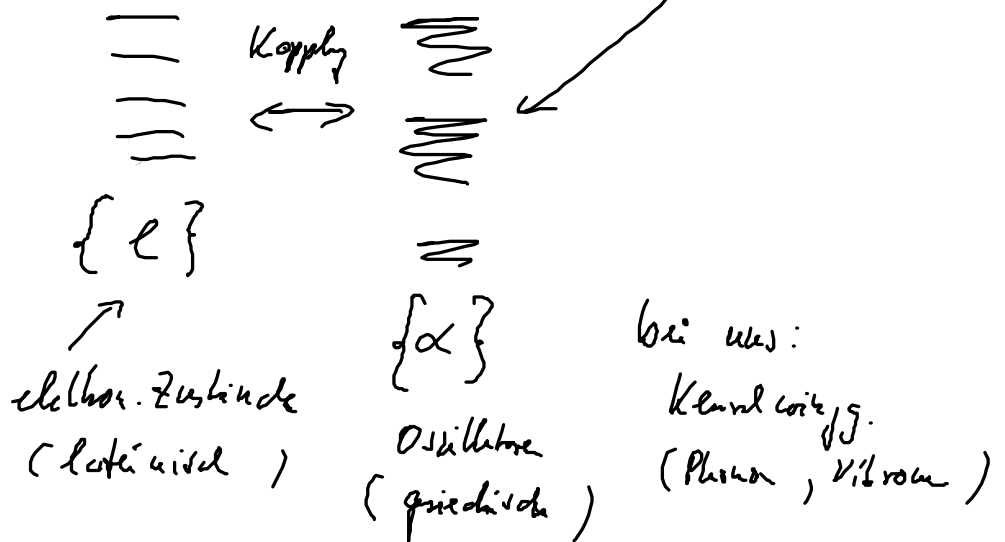 Kopplung
{ l }
{ α }
elektron. Zustände
(lateinisch)
Oszillatoren
(griechisch)
bei uns:
(Phonon, Vibron)